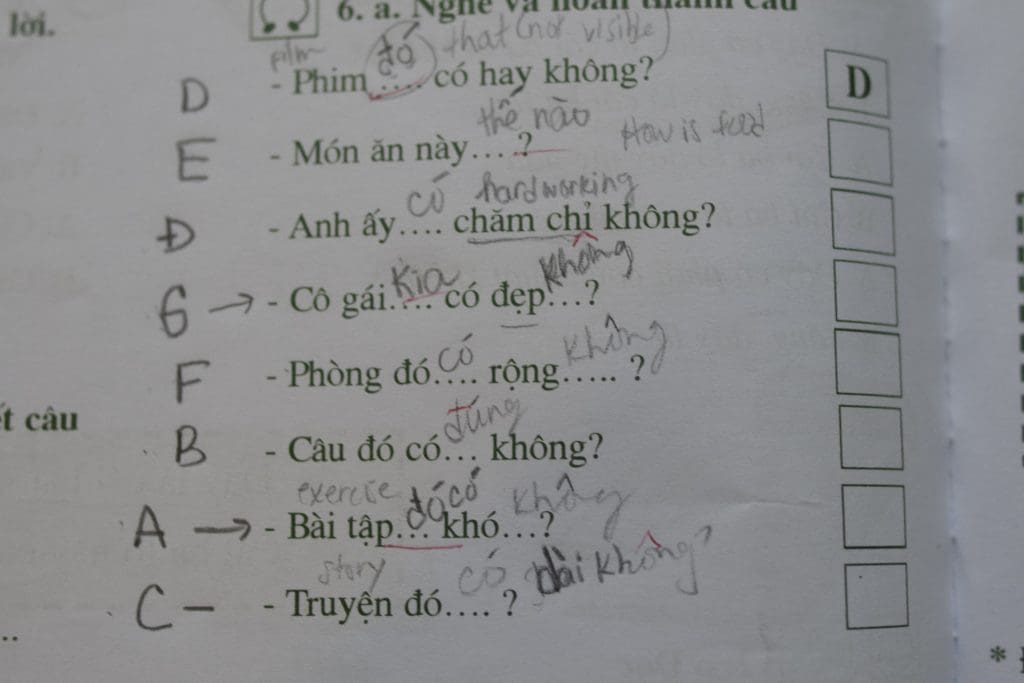 lời.
6. a. Nghe và hoàn thành câu
film đó that (not visible)
D - Phim .... có hay không? D
thế nào How is food
E - Món ăn này ... ?
có hardworking
Đ - Anh ấy .... chăm chỉ không?
kia không
G → - Cô gái .... có đẹp ...?
có không
F - Phòng đó .... rộng ..... ?
đúng
ết câu
B - Câu đó có ... không?
exercise đó có không
A → - Bài tập ... khó ...?
story có dài không?
C - - Truyện đó .... ?
..
*